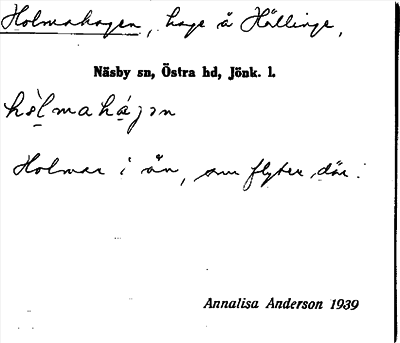 Holmahagen, hage å Hällinge,
Näsby sn, Östra hd, Jönk. l.
hòlmahágɔn
Holmar i ån, som flyter där.
Annalisa Anderson 1939